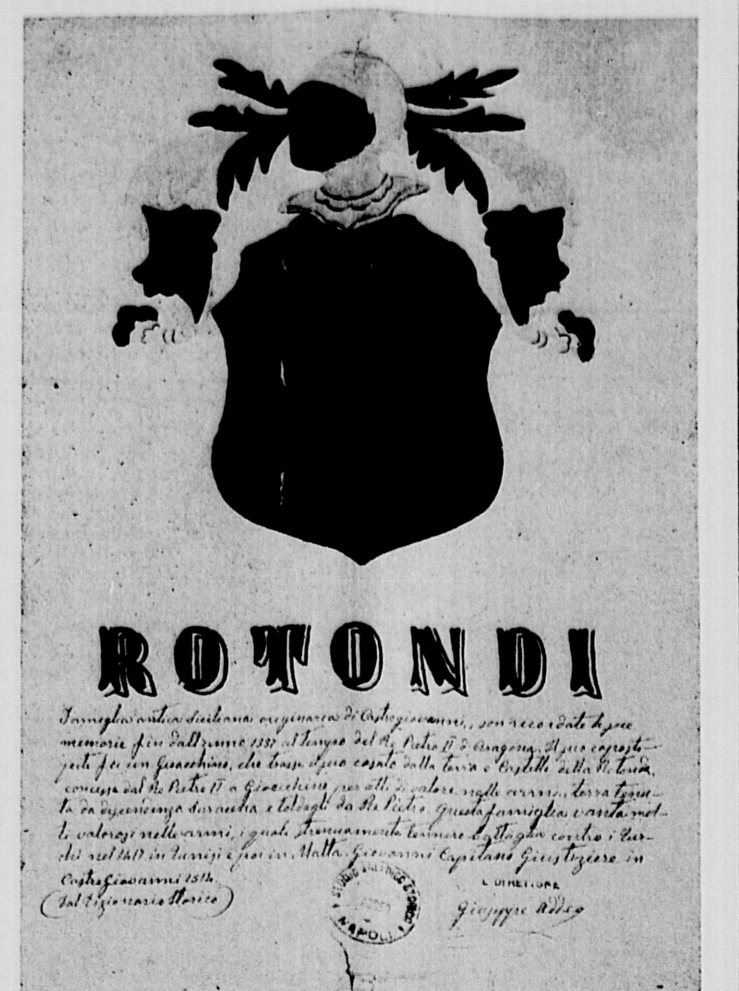 ROTONDI
Famiglia antica Siciliana originaria di Castrogiovanni, son ricordate le sue
memorie fin dall'anno 1337 al tempo del Re Pietro II d'Aragona. Il suo coposti-
pite fu un Gioacchino, che trasse il suo casato dalla terra e Castello della Rotonda,
concessa dal Re Pietro II a Gioacchino per atti di valore nelle armi, terra tenu-
ta da discendenza Saracena e toltagli da Re Pietro. Questa famiglia vanta mol-
ti valorosi nelle armi, i quali strenuamente tennero battaglia contro i Tur-
chi nel in Tunisi e poi in Malta. Giovanni Capitano Giustiziere in
CastroGiovanni 1514.
Dal Dizionario Storico
STUDIO
NAPOLI
IL DIRETTORE
Giuseppe